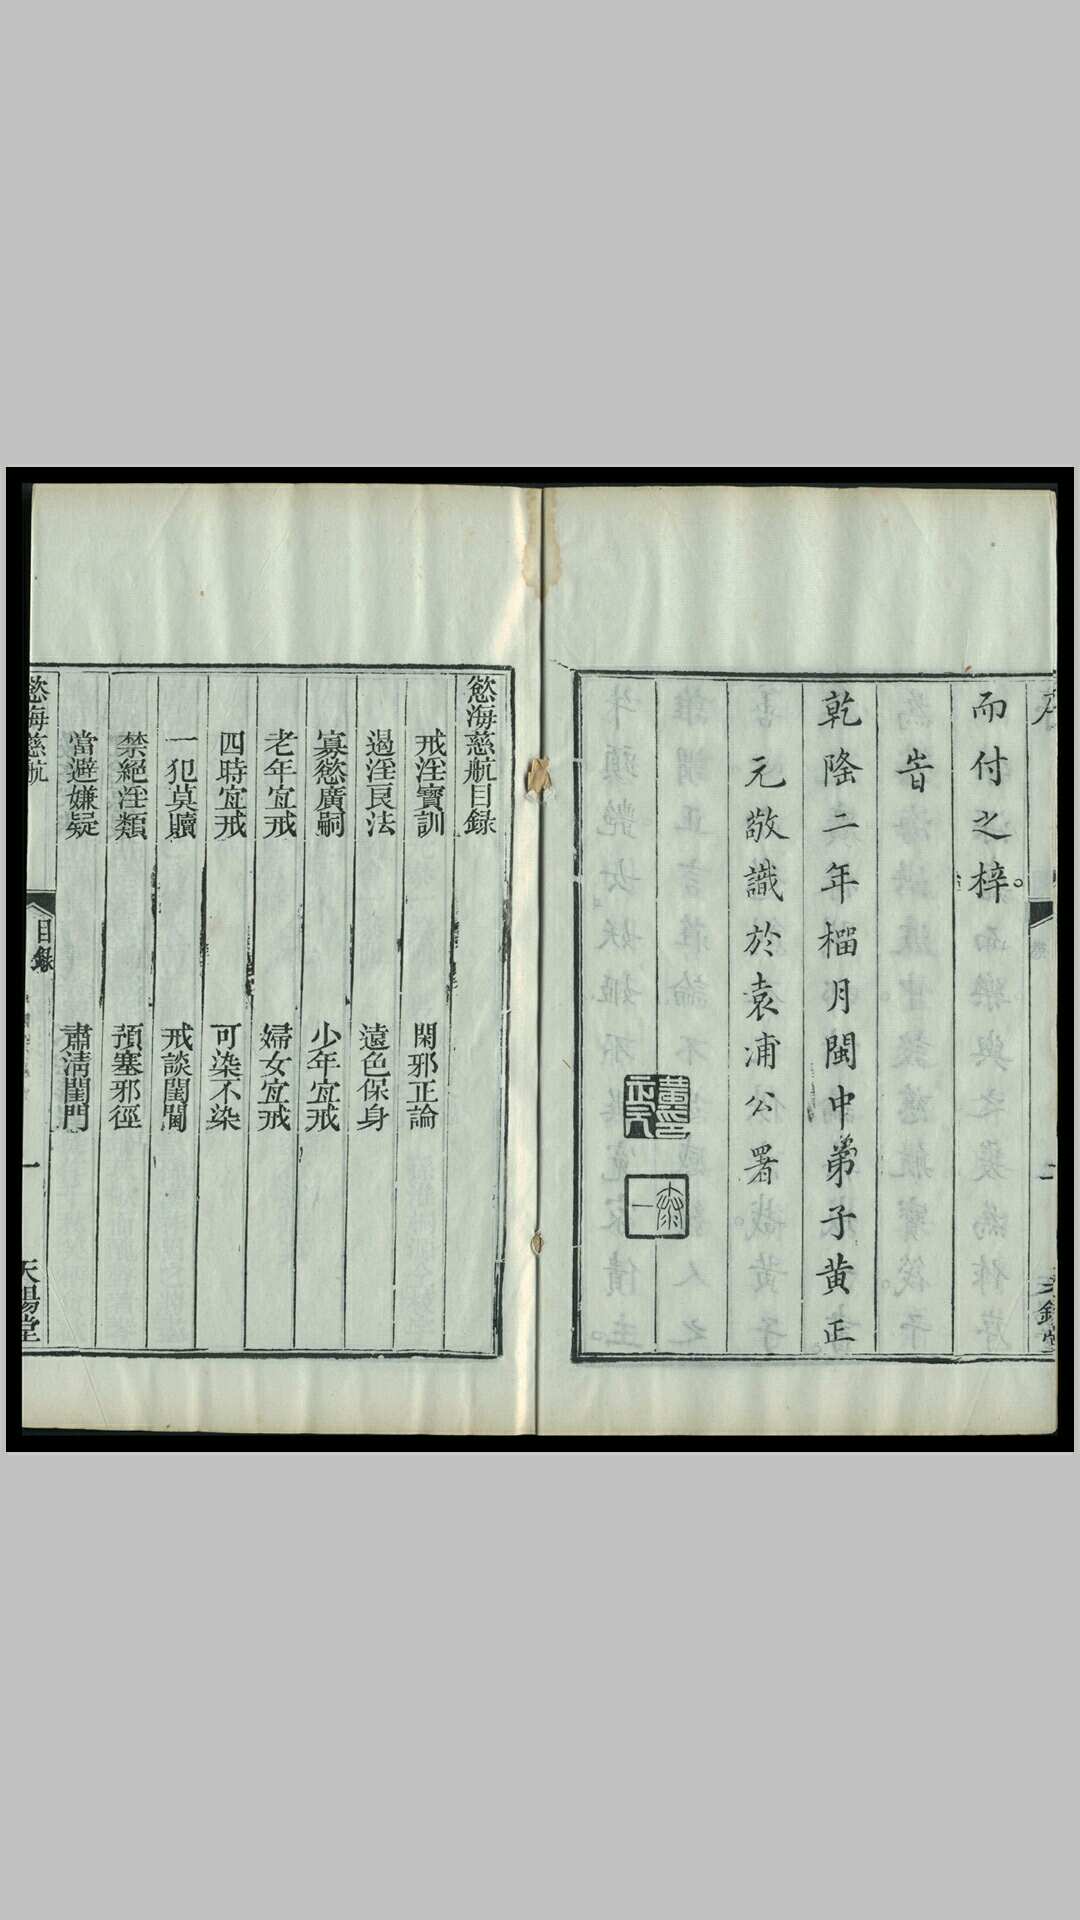 序
二
而付之梓。
旹
乾隆二年橊月閩中弟子黄正
元敬識於袁浦公署
慾海慈航目録
戒淫寶訓　閑邪正論
遏淫良法　遠色保身
寡慾廣嗣　少年宜戒
老年宜戒　婦女宜戒
四時宜戒　可染不染
一犯莫贖　戒談閨閫
禁絕淫類　預塞邪徑
當避嫌疑　肅清閨門
慾海慈航
目録
一